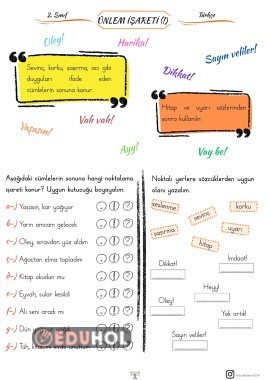 2. Sınıf
ÜNLEM İŞARETİ (!)
Türkçe
Oley!
Harika!
Sayın veliler!
Sevinç, korku, şaşırma, acı gibi
duyguları ifade eden
cümlelerin sonuna konur.
Dikkat!
Hitap ve uyarı sözlerinden
sonra kullanılır.
Yaşasın!
Vah vah!
Ayy!
Vay be!
Aşağıdaki cümlelerin sonuna hangi noktalama
işareti konur? Uygun kutucuğu boyayalım.
a-) Yaşasın, kar yağıyor . ! ?
b-) Yarın amcam gelecek . ! ?
c-) Oley, sınavdan yüz aldım . ! ?
ç-) Ağaçtan elma topladım . ! ?
d-) Kitap okudun mu . ! ?
e-) Eyvah, sular kesildi . ! ?
f-) Ali seni aradı mı . ! ?
g-) Dün
ğ-) Tüh,
EDUHOL
Noktalı yerlere sözcüklerden uygun
olanı yazalım.
seslenme
sevinç
korku
şaşırma
uyarı
hitap
Dikkat!
İmdaat!
Heyy!
Oley!
Yok artık!
Sayın veliler!